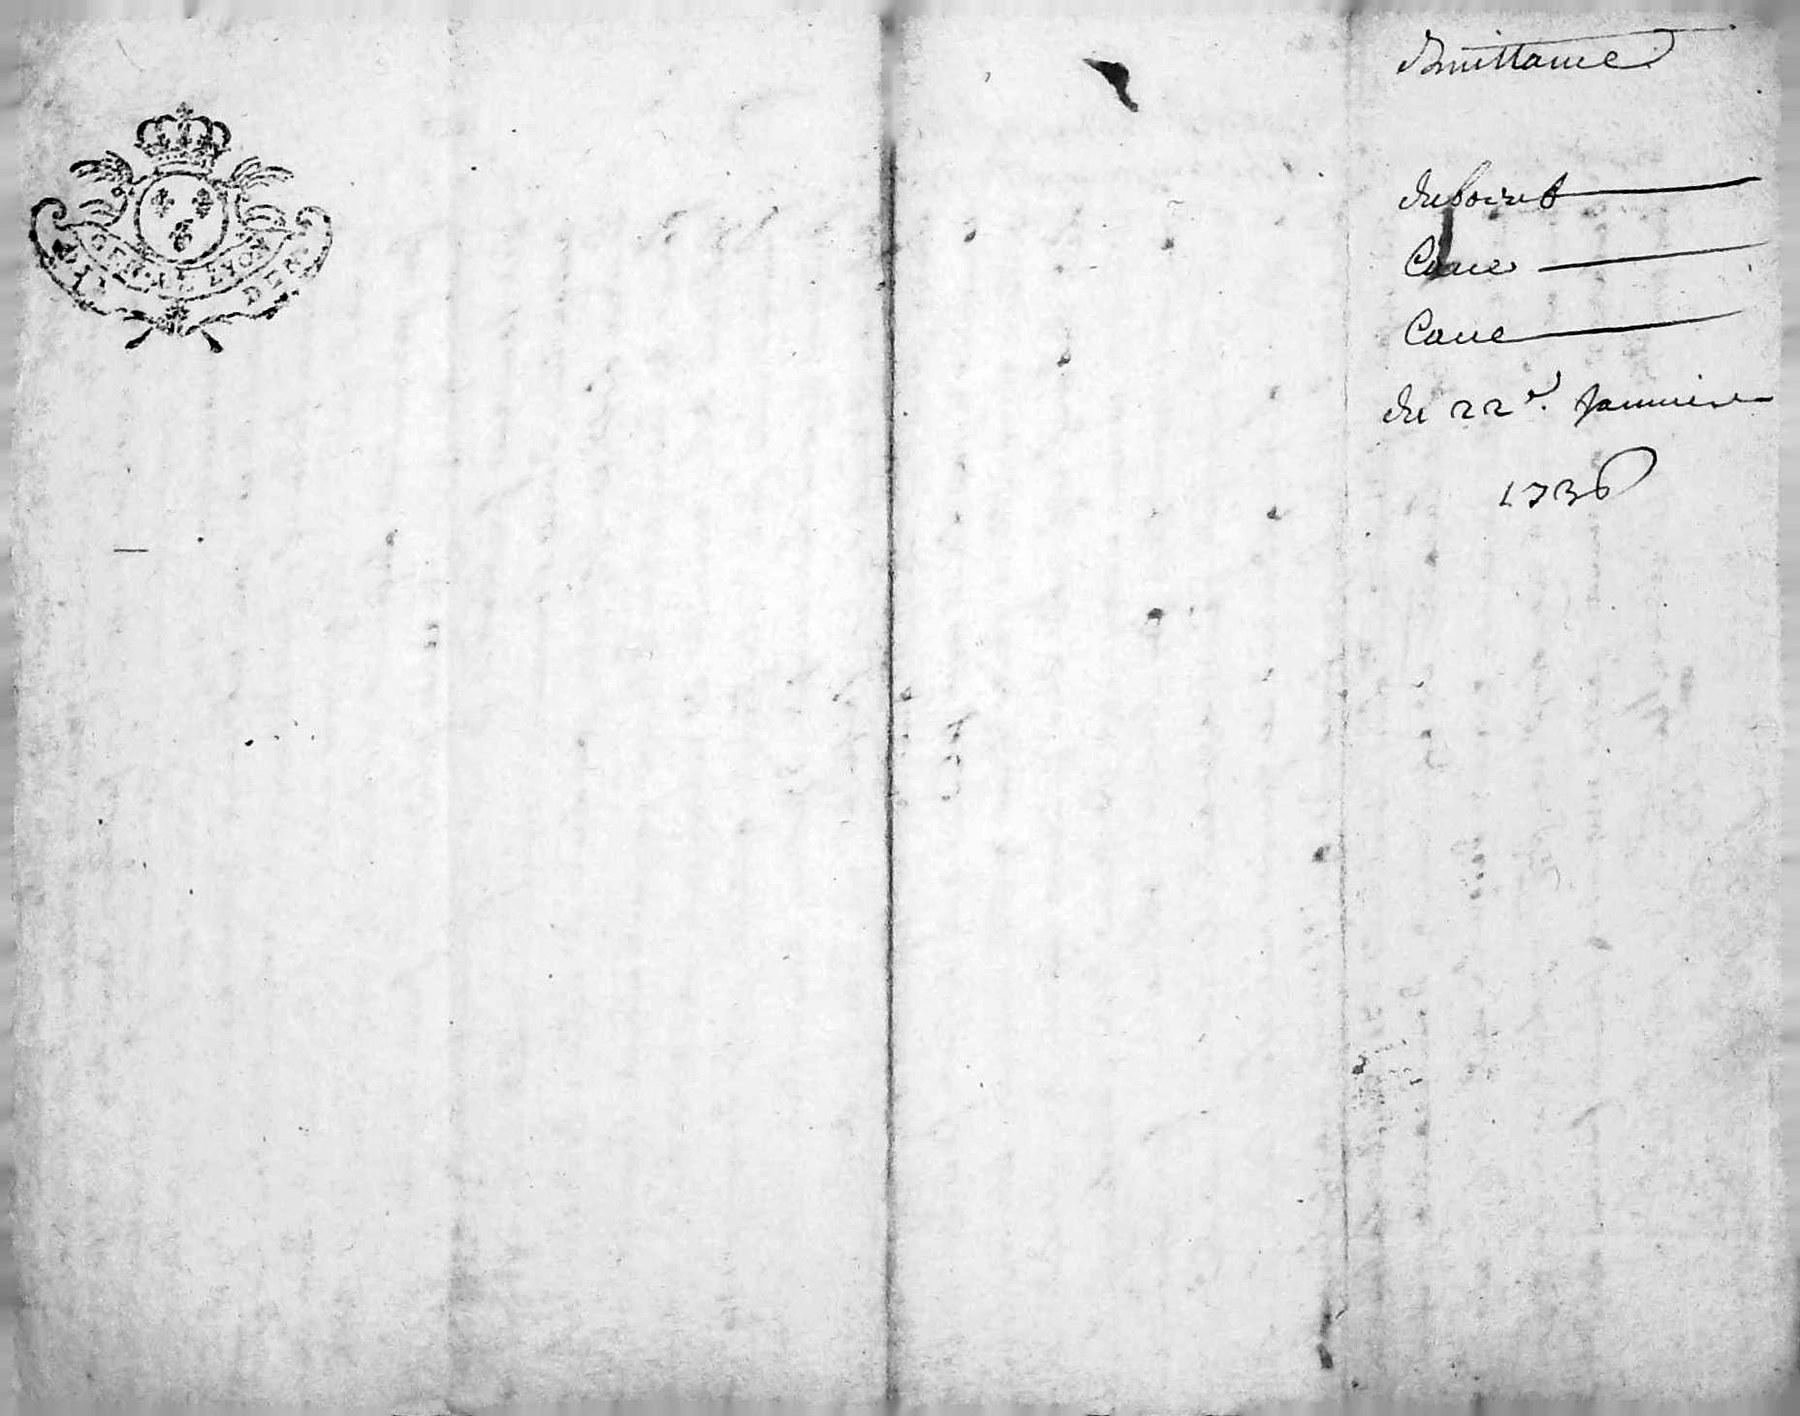 GEN. DE LYON
Quittance
du Soire
Caue
Caue
du 22e. Januier
1736